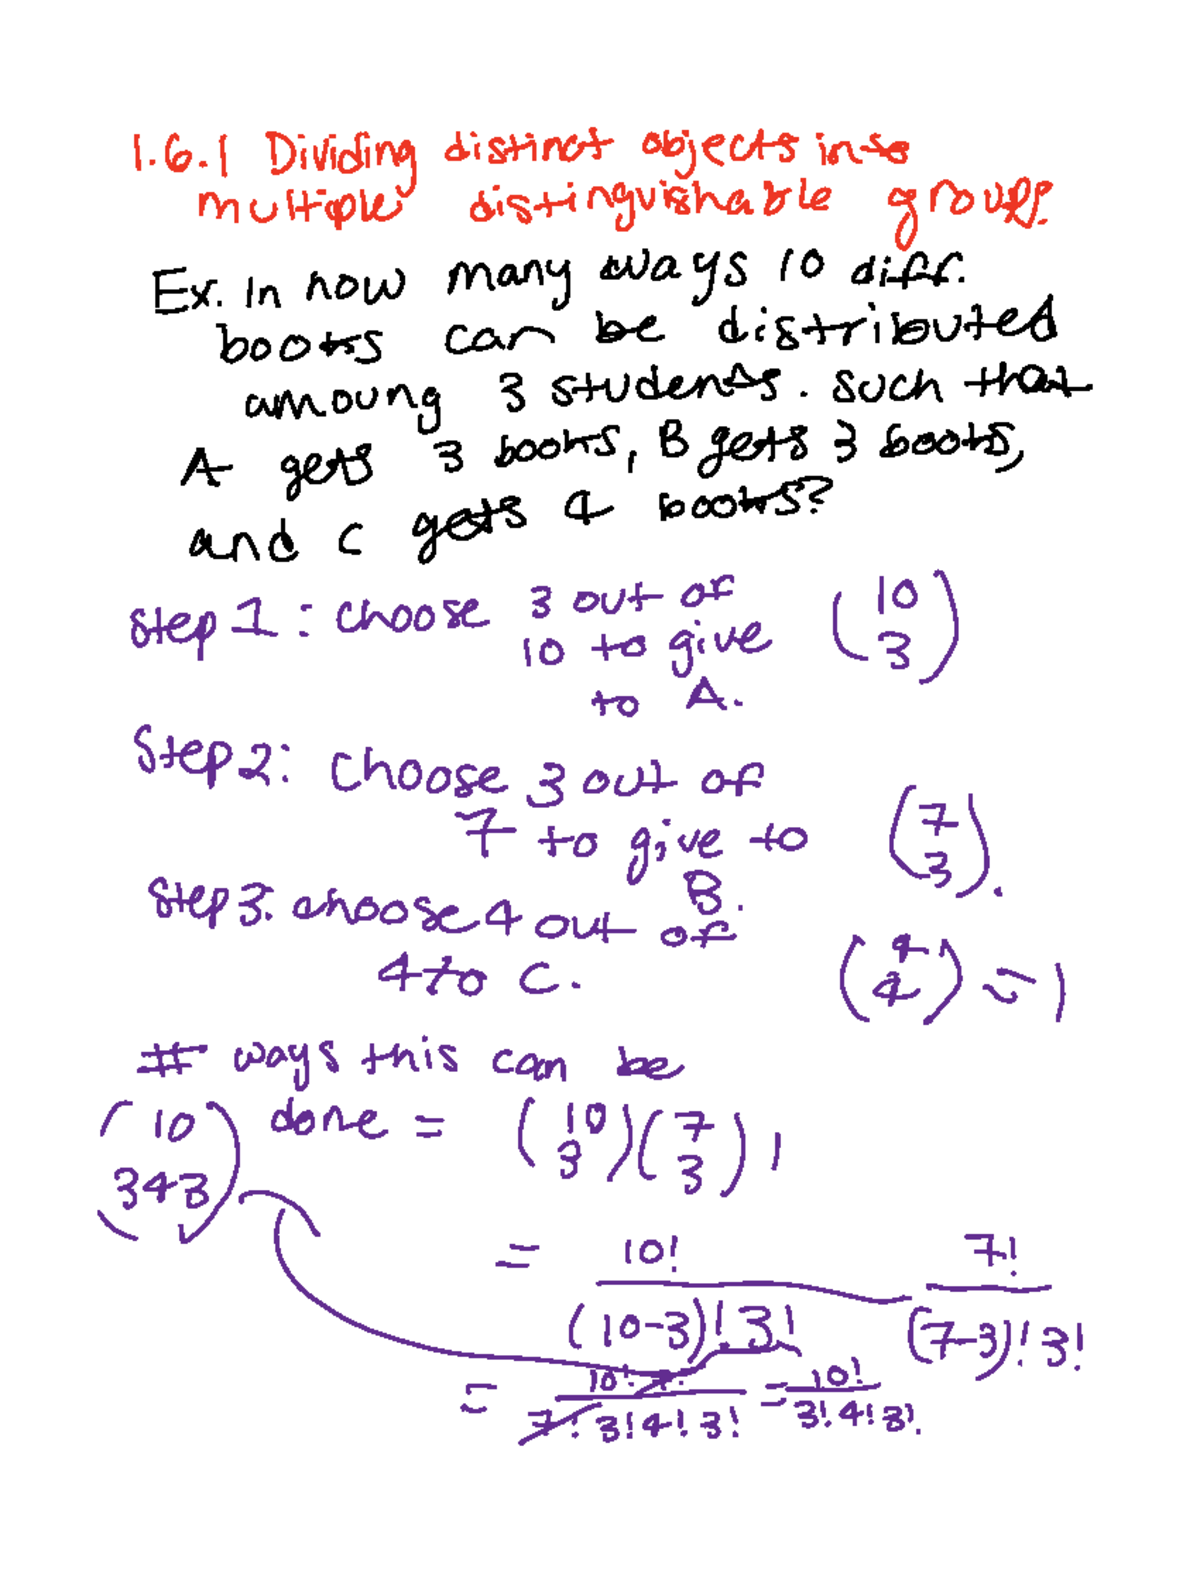 1.6.1 Dividing distinct objects into
multiple distinguishable groups.
Ex. In how many ways 10 diff.
books can be distributed
amoung 3 students. Such that
A gets 3 books, B gets 3 books,
and C gets 4 books?
Step 1: choose 3 out of
10 to give
to A.
(10
3)
Step 2: choose 3 out of
7 to give to
B.
(7
3).
Step 3: choose 4 out of
4 to C.
(4
4) = 1
# ways this can be
done = (10
3)(7
3) 1
(10
3 4 3)
= 10! / (10-3)! 3! 7! / (7-3)! 3!
= 10! 7! / 7! 3! 4! 3! = 10! / 3! 4! 3!